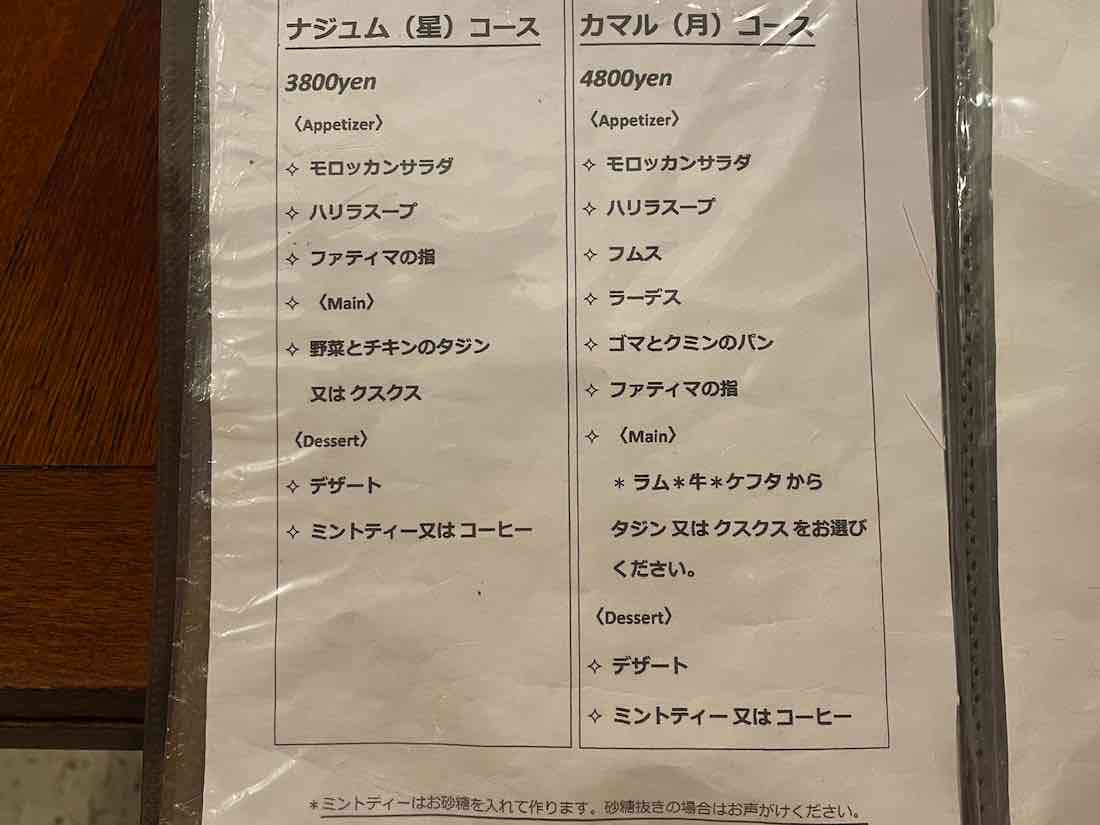 ナジュム（星）コース
3800yen
〈Appetizer〉
✧ モロッカンサラダ
✧ ハリラスープ
✧ ファティマの指
✧ 〈Main〉
✧ 野菜とチキンのタジン
又は クスクス
〈Dessert〉
✧ デザート
✧ ミントティー又は コーヒー
カマル（月）コース
4800yen
〈Appetizer〉
✧ モロッカンサラダ
✧ ハリラスープ
✧ フムス
✧ ラーデス
✧ ゴマとクミンのパン
✧ ファティマの指
✧ 〈Main〉
＊ラム＊牛＊ケフタ から
タジン 又は クスクス をお選び
ください。
〈Dessert〉
✧ デザート
✧ ミントティー 又は コーヒー
＊ミントティーはお砂糖を入れて作ります。砂糖抜きの場合はお声がけください。